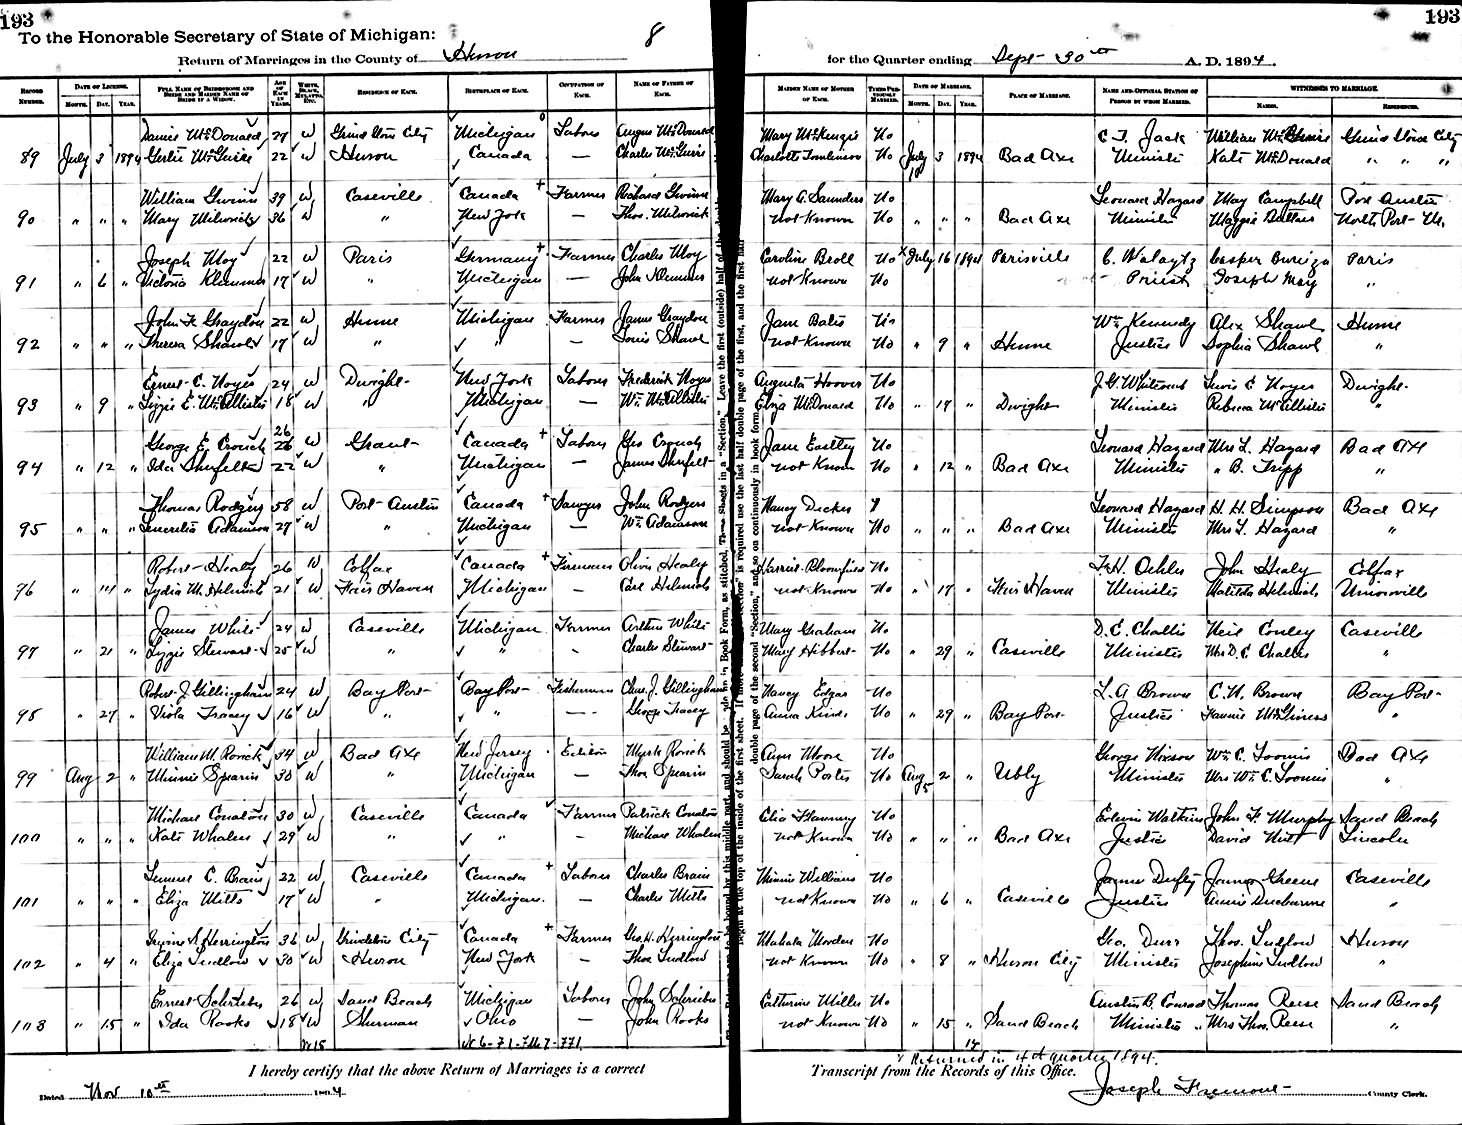 193
To the Honorable Secretary of State of Michigan:
8
Return of Marriages in the County of Huron
RECORD NUMBER. DATE OF LICENSE. MONTH. DAY. YEAR. FULL NAME OF BRIDEGROOM AND BRIDE AND MAIDEN NAME OF BRIDE IF A WIDOW. AGE OF EACH IN YEARS. WHITE, BLACK, MULATTO, ETC. RESIDENCE OF EACH. BIRTHPLACE OF EACH. OCCUPATION OF EACH. NAME OF FATHER OF EACH.
McDonald 27 W Grind Stone City Michigan Labor Angus McDonald
89 July 3 1894 Gertie McGuire 22 W Huron Canada — Charles McGuire
William Gwinn 39 W Caseville Canada Farmer Richard Gwinn
90 " " " Mary 36 W " New York — Thos.
Joseph Moy 22 W Paris Germany Farmer Charles Moy
91 " 6 " Victoria Klemmer 17 W " Michigan — John Klemmer
John F. Graydon 22 W Hume Michigan Farmer James Graydon
92 " " " Theresa Shawl 17 W " " — Louis Shawl
Ernest C. Noyes 24 W Dwight New York Labor Frederick Noyes
93 " 9 " Lizzie E. McAllister 18 W " Michigan — Wm McAllister
George E. Crouch 26 26 W Grant Canada Labor Geo Crouch
94 " 12 " Ida Shufelt 22 W " Michigan — James Shufelt
Thomas Rodgers 58 W Port Austin Canada Sawyer John Rodgers
95 " " " Lucretia Adamson 27 W " Michigan — Wm Adamson
Robert Healy 26 W Colfax Canada Fireman Oliver Healy
96 " " Lydia M. Helmick 21 W Fair Haven Michigan — Carl Helmick
James White 24 W Caseville Michigan Farmer Arthur White
97 " 21 " Lizzie Stewart 25 W " " - Charles Stewart
Robert J. Gillingham 24 W Bay Port Bay Port Fisherman Chas. J. Gillingham
98 " 27 " Viola Tracey 16 W " " — George Tracey
William M. Rorick 34 W Bad Axe New Jersey Editor Rorick
99 Aug 2 " Minnie Spearin 30 W " Michigan — Thos Spearin
Michael 30 W Caseville Canada Farmer Patrick
100 " " " Kate Whalen 29 W " " — Michael Whalen
Lemuel C. Brain 22 W Caseville Canada Labor Charles Brain
101 " " " Eliza Mitts 17 W " Michigan. — Charles Mitts
Irvine S. Herrington 36 W Grindstone City Canada Farmer Geo. H. Herrington
102 " 4 " Eliza Ludlow 30 W Huron New York — Thos Ludlow
Ernest Schriber 26 W Sand Beach Michigan Labor John Schriber
103 " 15 " Ida Rooks 18 W Sherman Ohio — John Rooks
I hereby certify that the above Return of Marriages is a correct
Dated Nov 10th 1894
193
for the Quarter ending Sept 30th A. D. 1894.
MAIDEN NAME OF MOTHER OF EACH. TIMES PREVIOUSLY MARRIED. DATE OF MARRIAGE. MONTH. DAY. YEAR. PLACE OF MARRIAGE. NAME AND OFFICIAL STATION OF PERSON BY WHOM MARRIED. WITNESSES TO MARRIAGE. NAMES. RESIDENCES.
Mary McKenzie No C. T. Jack William McGuire Grind Stone City
Charlotte Tomlinson No July 3 1894 Bad Axe Minister Kate McDonald " " "
Mary A. Saunders No Leonard Hazard May Campbell Port Austin
not Known No " " " Bad Axe Minister Maggie North Port
Caroline Broll No July 16 1894 Parisville Casper Paris
not Known No Priest Joseph May "
Jane Bates No Wm Kennedy Alex Shawl Hume
not Known No " 9 " Hume Justice Sophia Shawl "
Augusta Hoover No J. G. Whitcomb Lewis C Noyes Dwight
Eliza McDonald No " 17 " Dwight Minister Rebecca McAllister "
Jane Eastley No Leonard Hazard Mrs L. Hazard Bad Axe
not Known No " 12 " Bad Axe Minister " B. Tripp "
Nancy Decker Leonard Hazard H. H. Simpson Bad Axe
not Known No " " " Bad Axe Minister Mrs L. Hazard "
Harriet Bloomfield No F. H. Oehler John Healy Colfax
not Known No " 17 " Fair Haven Minister Matilda Helmick Unionville
Mary Graham No D. E. Challis Neil Conley Caseville
Mary Hibbert No " 29 " Caseville Minister Mrs D. E. Challis "
Nancy Edgar No L. A Brown C. H. Brown Bay Port
Anna No " 29 " Bay Port Justice Fannie "
Moore No George Nixson Wm C. Loomis Bad Axe
Sarah Porter No Aug 2 " Ubly Minister Mrs Wm C. Loomis "
Flannery No Edwin Watkins John F. Murphy Sand Beach
not Known No " " " Bad Axe Justice David Lincoln
Minnie Williams No James Dufty James Greene Caseville
not Known No " 6 " Caseville Justice Annie "
Mahala Morden No Geo. Durr Thos. Ludlow Huron
not Known No " 8 " Huron City Minister Josephine Ludlow "
Catherine Miller No Austin B. Conrad Thomas Reese Sand Beach
not Known No " 15 " Sand Beach Minister Mrs Thos. Reese "
Returned in 4th quarter 1894.
Transcript from the Records of this Office.
Joseph Fremont County Clerk.